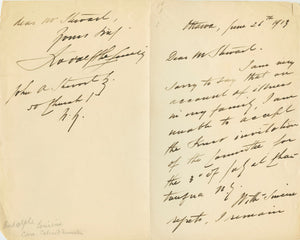 Ottawa, June 28th 1913
Dear Mr Stewart.
I am very
sorry to say that on
account of illness
in my family, I am
unable to accept
the kind invitation
of the Committee for
the 3rd of July at Chau-
tauqua N.Y.
With sincere
regrets, I remain
dear Mr Stewart,
Yours truly
John A. Stewart Esq.
50 Church St
N.Y.
Rodolphe Lemieux